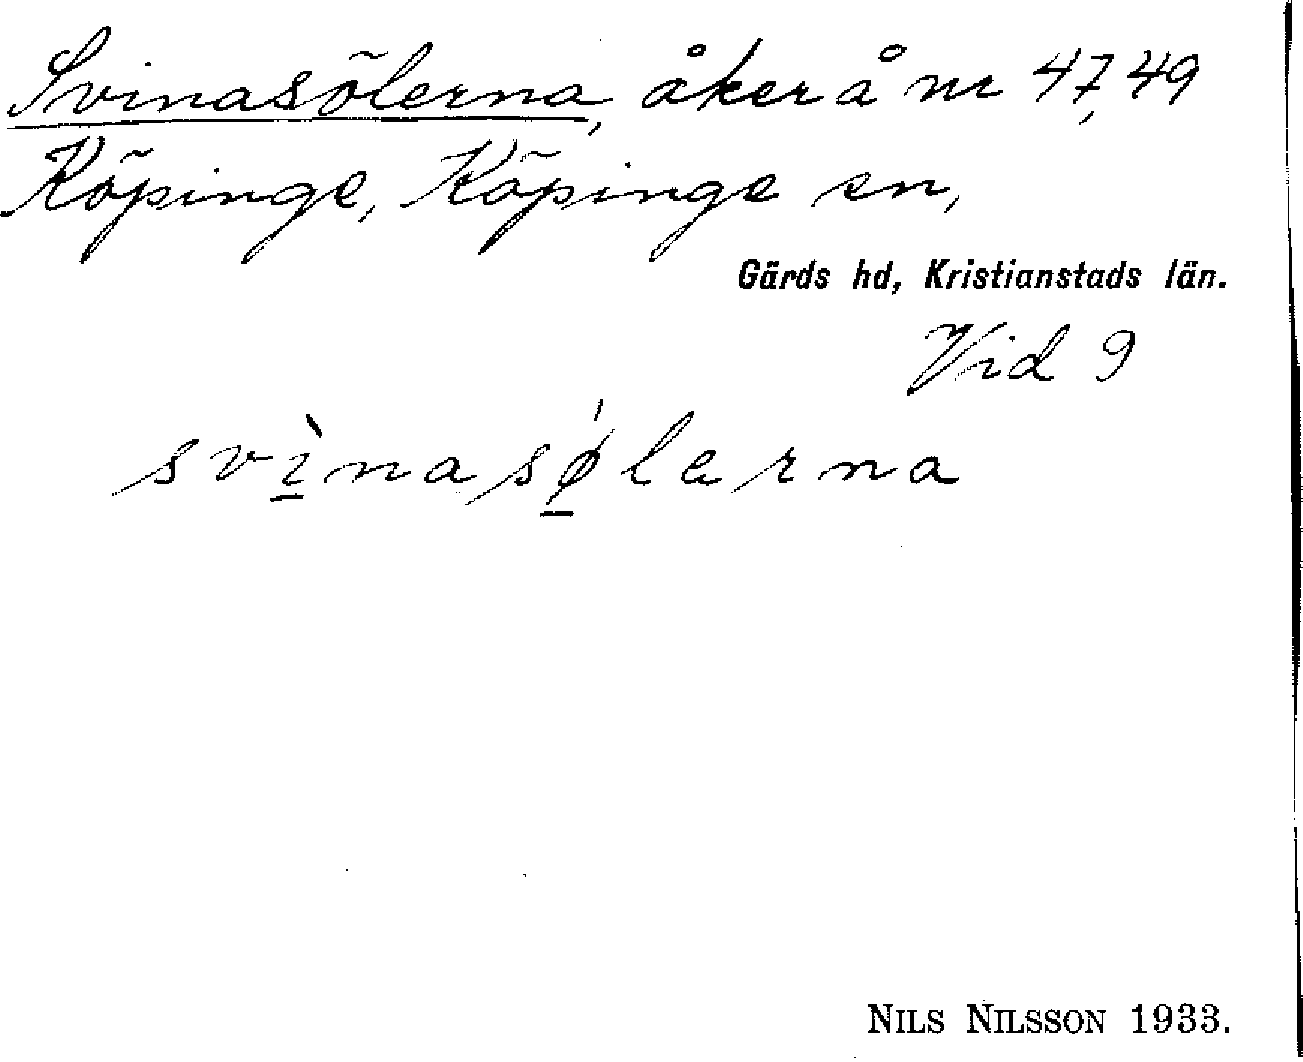 Svinasölerna, åker å nr 47, 49
Köpinge, Köpinge sn,
Gärds hd, Kristianstads län.
Vid 9
svì̠nasǿ̠lerna
NILS NILSSON 1933.